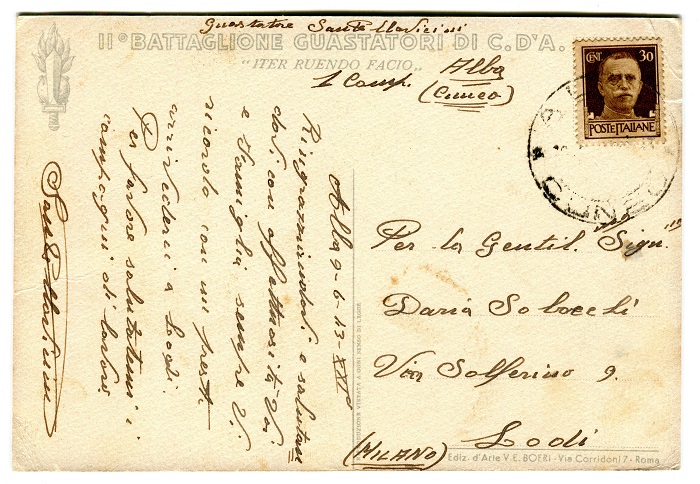 Guastatore Sante Moricini
IIº BATTAGLIONE GUASTATORI DI C.D'A.
"ITER RUENDO FACIO„
1 Comp. Alba
(Cuneo)
CENT. 30
POSTE ITALIANE
CUNEO
Alba 9-6-43-XXIº
Ringraziandovi e salutan
dovi con affettuosità Voi
e Famiglia sempre Vi
ricordo con un presto
arrivederci a Lodi.
Per favore salutatemi i
compagni di lavoro
Sante
Per la Gentil. Sign.na
Daria Solocchi
Via Solferino 9.
Lodi
(MILANO)
RIPRODUZIONE VIETATA A OGNI SENSO DI LEGGE
Ediz. d'Arte V. E. BOERI - Via Corridoni 7 - Roma